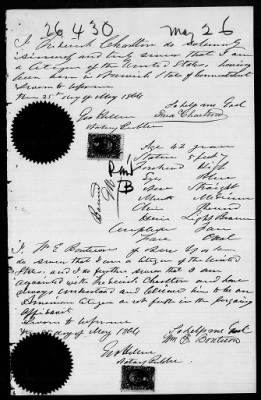 26430 May 26
I Frederick Charlton do Solemnly
sincerely and truly swear that I am
a Citizen of the United States, having
been born in Norwich State of Connecticut
Sworn to before me
this 25th day of May 1864 So help me God
Geo Fred Charlton
Notary Public
Age 42 years
Stature 5 feet
Forehead High
Eyes Blue
Nose Straight
Mouth Medium
Chin Round
Hair Light Brown
Complexion
Face Oval
I Wm E Bontecou of
do swear that I am a Citizen of the United
States, and I do further swear that I am
acquainted with Frederick Charlton and have
always understood and believed him to be an
American Citizen as set forth in the foregoing
Affidavit
Sworn to before me So help me God
day of May 1864 Wm E Bontecou
Geo
Notary Public